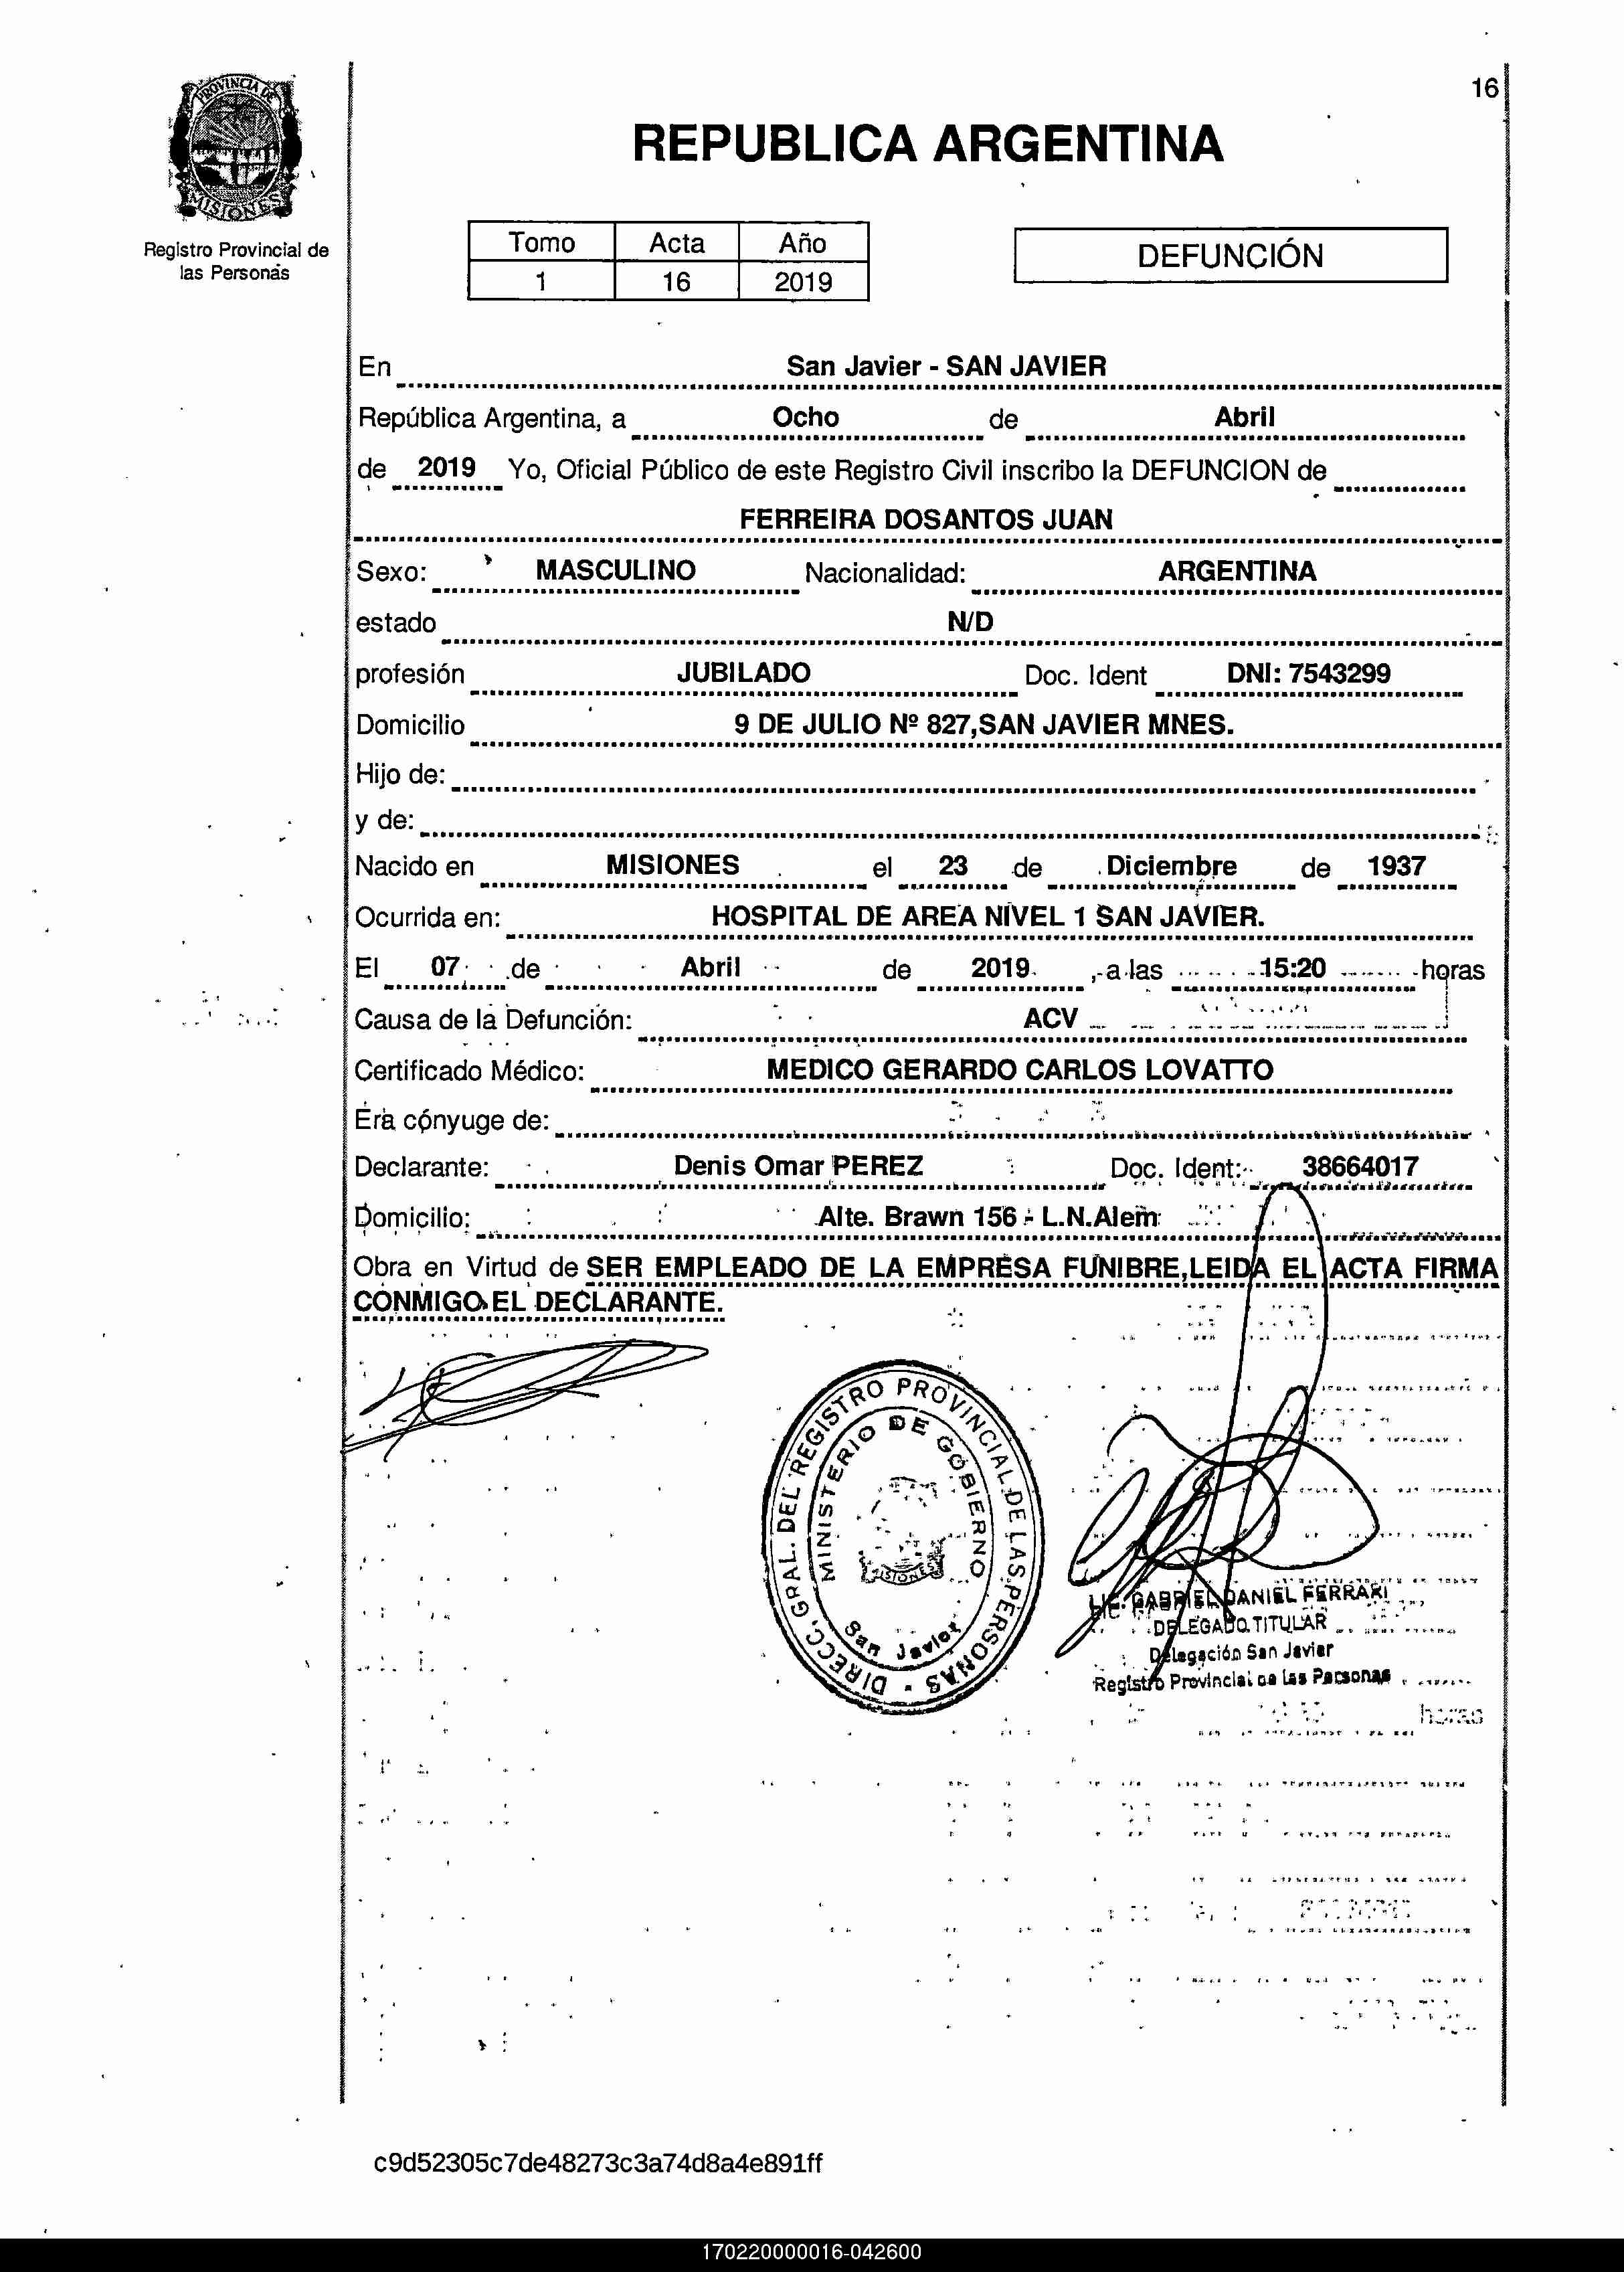 16
PROVINCIA DE
MISIONES
Registro Provincial de
las Personas
REPUBLICA ARGENTINA
Tomo Acta Año
1 16 2019
DEFUNCIÓN
En San Javier - SAN JAVIER
República Argentina, a Ocho de Abril
de 2019 Yo, Oficial Público de este Registro Civil inscribo la DEFUNCION de
FERREIRA DOSANTOS JUAN
Sexo: MASCULINO Nacionalidad: ARGENTINA
estado N/D
profesión JUBILADO Doc. Ident DNI: 7543299
Domicilio 9 DE JULIO Nº 827,SAN JAVIER MNES.
Hijo de:
y de:
Nacido en MISIONES el 23 de Diciembre de 1937
Ocurrida en: HOSPITAL DE AREA NIVEL 1 SAN JAVIER.
El 07 de Abril de 2019 , a las 15:20 horas
Causa de la Defunción: ACV
Certificado Médico: MEDICO GERARDO CARLOS LOVATTO
Era cónyuge de:
Declarante: Denis Omar PEREZ Doc. Ident: 38664017
Domicilio: Alte. Brawn 156 - L.N.Alem
Obra en Virtud de SER EMPLEADO DE LA EMPRESA FUNIBRE,LEIDA EL ACTA FIRMA
CONMIGO EL DECLARANTE.
DIRECC. GRAL. DEL REGISTRO PROVINCIAL DE LAS PERSONAS
MINISTERIO DE GOBIERNO
MISIONES
San Javier
LIC. GABRIEL DANIEL FERRARI
DELEGADO TITULAR
Delegación San Javier
Registro Provincial de las Personas
horas
c9d52305c7de48273c3a74d8a4e891ff
170220000016-042600